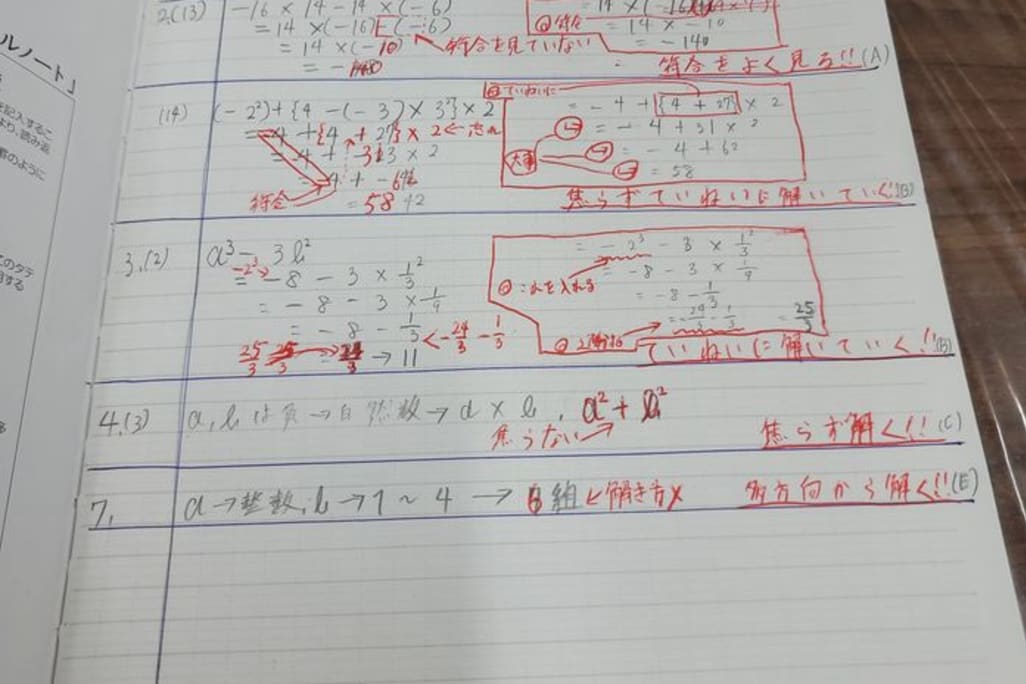 ルノート」
を記入するこ
より、読み返
習のように
このタテ
用する
2.(13) -16 × 14 - 14 × (-6)
= 14 × (-16) - (-6)
= 14 × (-10) 符合を見ていない
= 14 × -10
= -140
符合をよく見る!! (A)
(14) (-2²) + {4 - (-3) × 3²} × 2
= -4 + {4 + 27} × 2
符合
= 58
ていねいに
= -4 + {4 + 27} × 2
= -4 + 31 × 2
= -4 + 62
= 58
大事
焦らずていねいに解いていく!! (B)
3.(2) a³ - 3b²
= -8 - 3 × 1/3²
= -8 - 3 × 1/9
= -8 - 1/3 < -24/3 - 1/3
25/3 → 11
= -2³ - 3 × 1/3²
= -8 - 3 × 1/9
= -8 - 1/3
= -24/3 - 1/3 = 25/3
これを入れる
ていねいに解いていく!! (B)
4.(3) a, bは負→自然数→a × b, a² + b²
焦らない
焦らず解く!! (C)
7. a→整数, b→1〜4 → 6組 解き方×
多方向から解く!! (E)